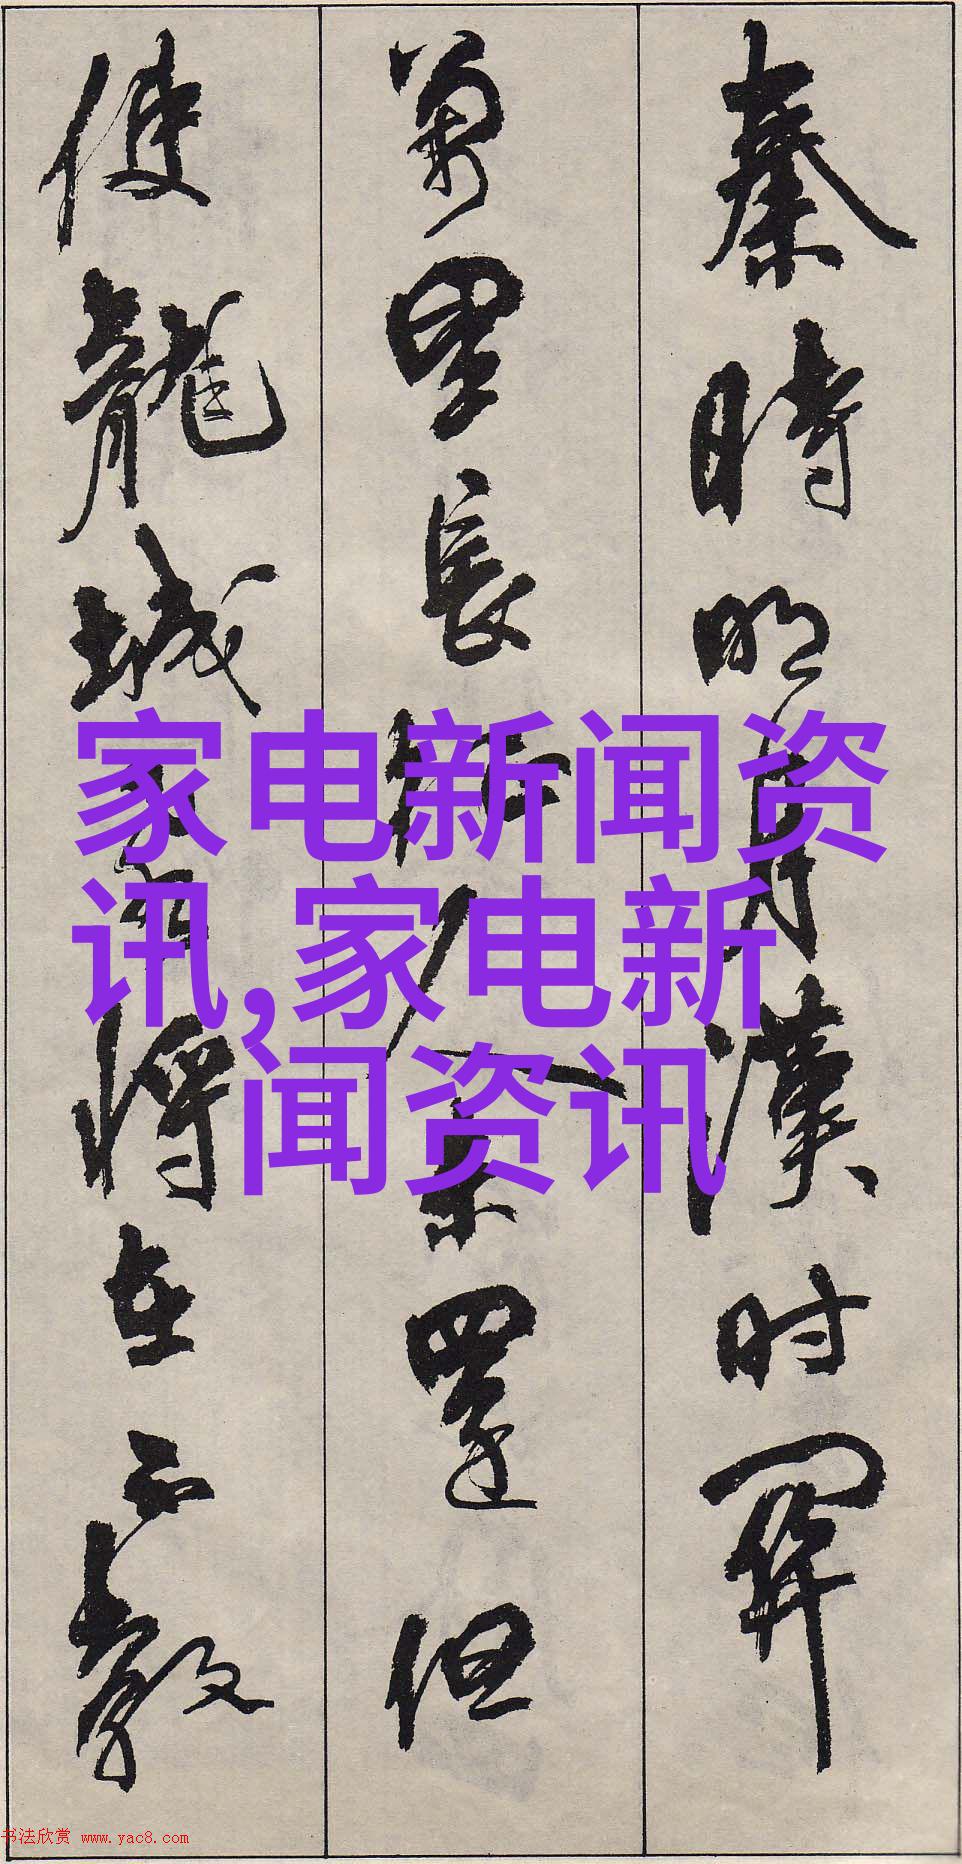 秦時明月漢时關
萬里長征人未還但
使龍城飛將在不教
家电新闻资
讯,家电新
闻资讯
书法欣赏 www.yac8.com